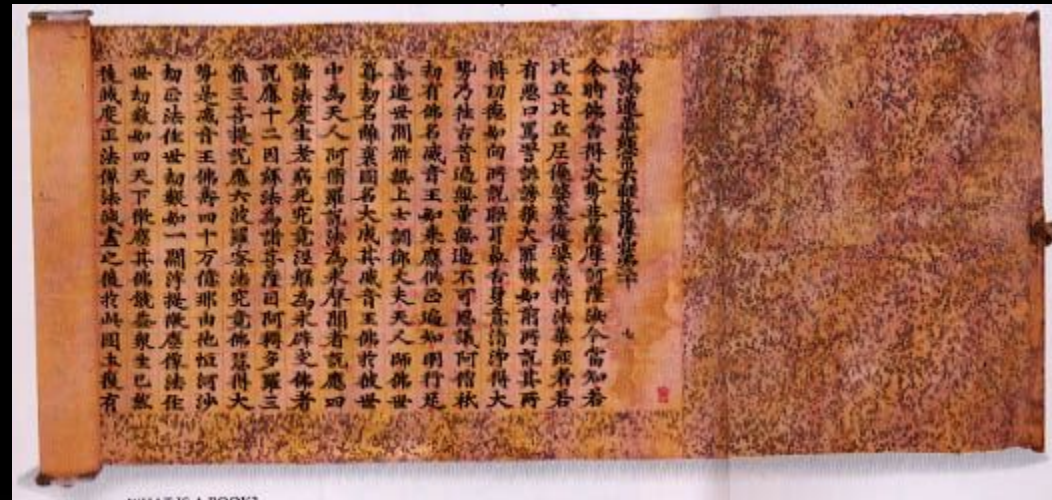 妙法蓮華經常不輕菩薩品第二十 七
尒時佛告得大勢菩薩摩訶薩汝今當知若
比丘比丘尼優婆塞優婆夷持法華經者若
有惡口罵詈誹謗獲大罪報如前所說其所
得功德如向所說眼耳鼻舌身意清淨得大
勢乃往古昔過無量無邊不可思議阿僧祇
劫有佛名威音王如來應供正遍知明行足
善逝世間解無上士調御丈夫天人師佛世
尊劫名離衰國名大成其威音王佛於彼世
中為天人阿脩羅說法為求聲聞者說應四
諦法度生老病死究竟涅槃為求辟支佛者
說應十二因緣法為諸菩薩因阿耨多羅三
藐三菩提說應六波羅蜜法究竟佛慧得大
勢是威音王佛壽四十万億那由他恒河沙
劫正法住世劫數如一閻浮提微塵像法住
世劫數如四天下微塵其佛饒益眾生已然
後滅度正法像法滅盡之後於此國土復有
WHAT IS A BOOK?